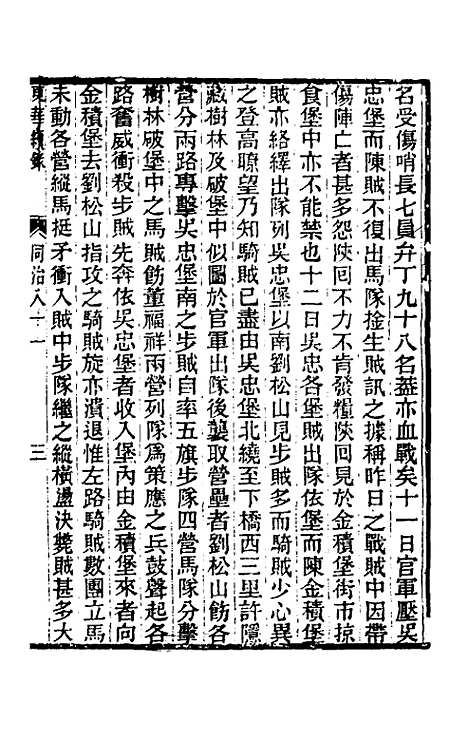 名受傷哨長七員弁丁九十八名葢亦血戰矣十一日官軍壓吳
忠堡而陳賊不復出馬隊捦生賊訊之據稱昨日之戰賊中因帶
傷陣亡者甚多怨陝回不力不肯發糧陝回見於金積堡街市掠
食堡中亦不能禁也十二日吳忠各堡賊出隊依堡而陳金積堡
賊亦絡繹出隊列吳忠堡以南劉松山見步賊多而騎賊少心異
之登高瞭望乃知騎賊已盡由吳忠堡北繞至下橋西三里許隱
藏樹林及破堡中似圖於官軍出隊後襲取營壘者劉松山飭各
營分兩路專擊吳忠堡南之步賊自率五旗步隊四營馬隊分擊
樹林破堡中之馬賊飭董福祥兩營列隊爲策應之兵鼓聲起各
路奮威衝殺步賊先奔依吳忠堡者收入堡內由金積堡來者向
金積堡去劉松山指攻之騎賊旋亦潰退惟左路騎賊數團立馬
未動各營縱馬挺矛衝入賊中步隊繼之縱橫盪決斃賊甚多大
東華續錄 同治八十一 三